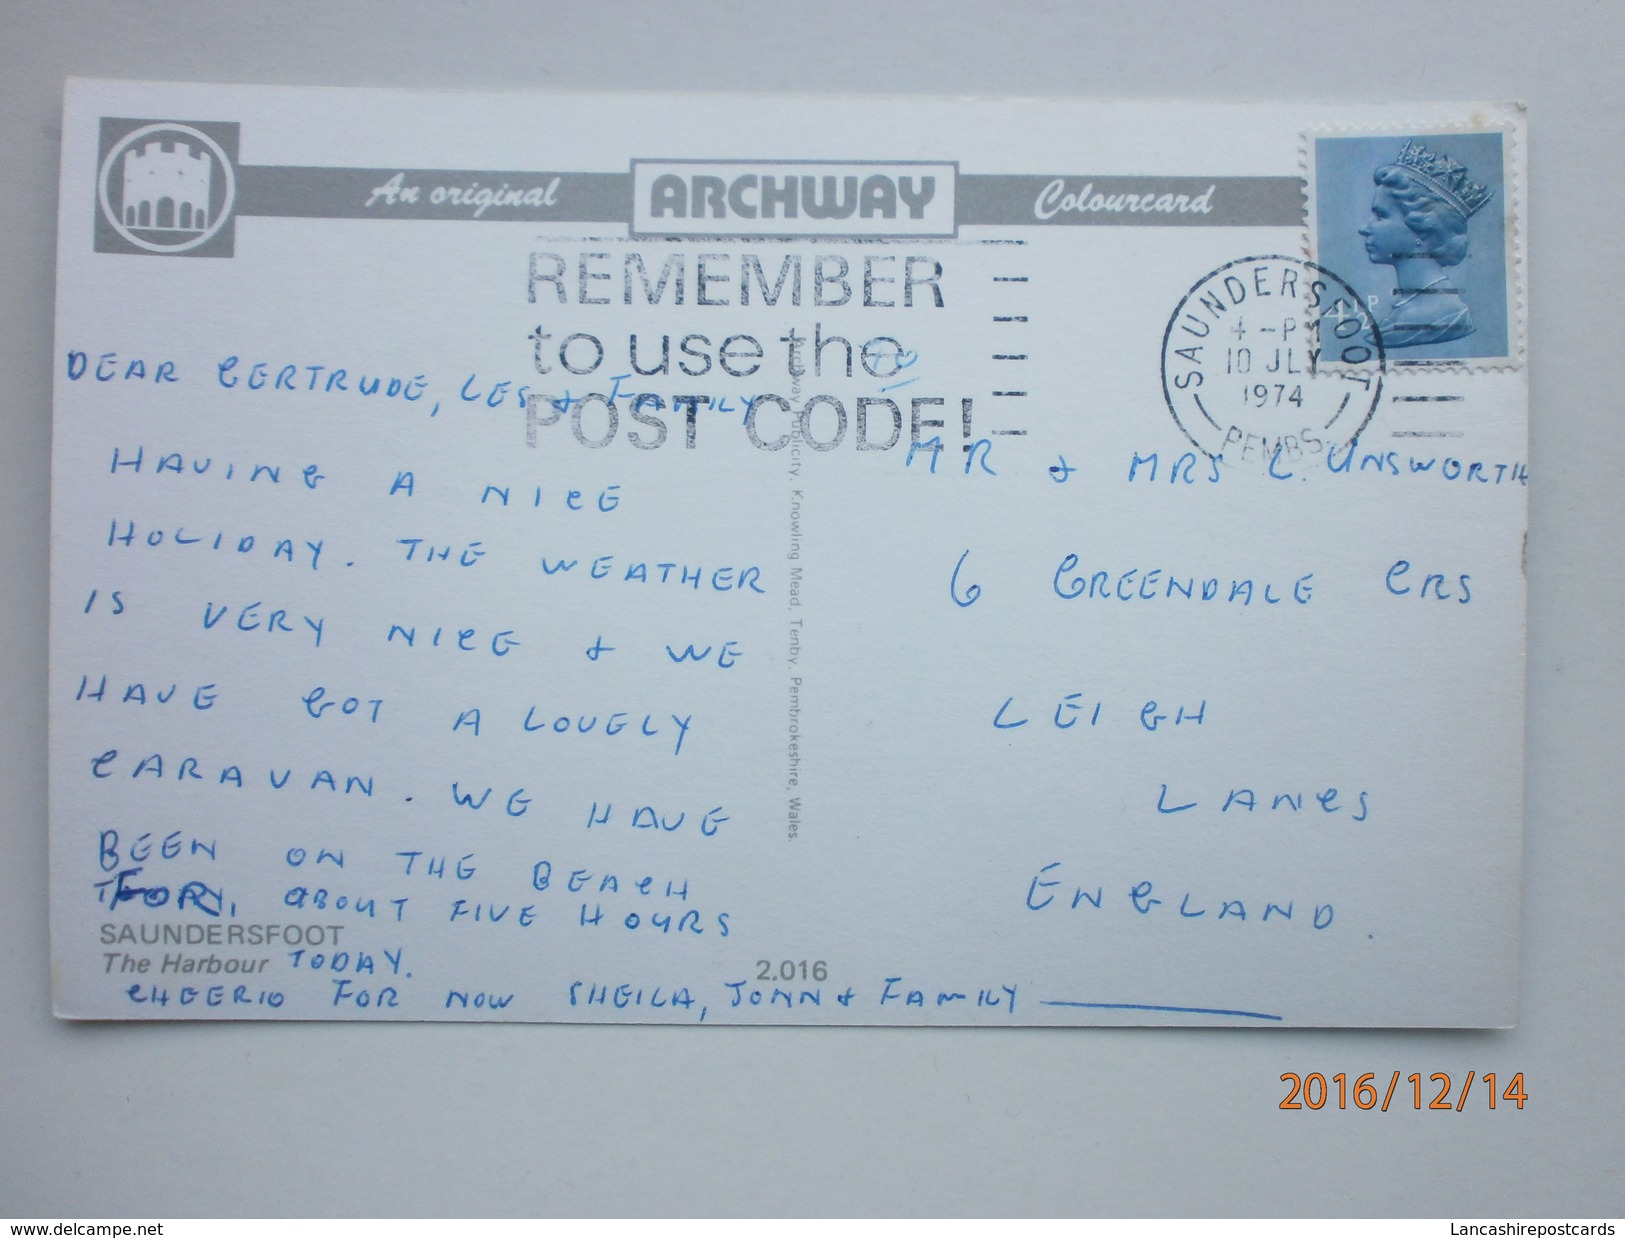 An original ARCHWAY Colourcard
REMEMBER
to use the
POST CODE!
SAUNDERSFOOT
4 -P
10 JLY
1974
PEMBS
4½P
DEAR GERTRUDE, LES & FAMILY
HAVING A NICE
HOLIDAY. THE WEATHER
IS VERY NICE & WE
HAVE GOT A LOVELY
CARAVAN. WE HAVE
BEEN ON THE BEACH
FOR, ABOUT FIVE HOURS
TODAY.
CHEERIO FOR NOW SHEILA, JOHN & FAMILY
SAUNDERSFOOT
The Harbour
2.016
Archway Publicity, Knowling Mead, Tenby, Pembrokeshire, Wales.
TO
MR & MRS L. UNSWORTH
6 GREENDALE CRS
LEIGH
LANCS
ENGLAND.
2016/12/14
www.delcampe.net
Lancashirepostcards